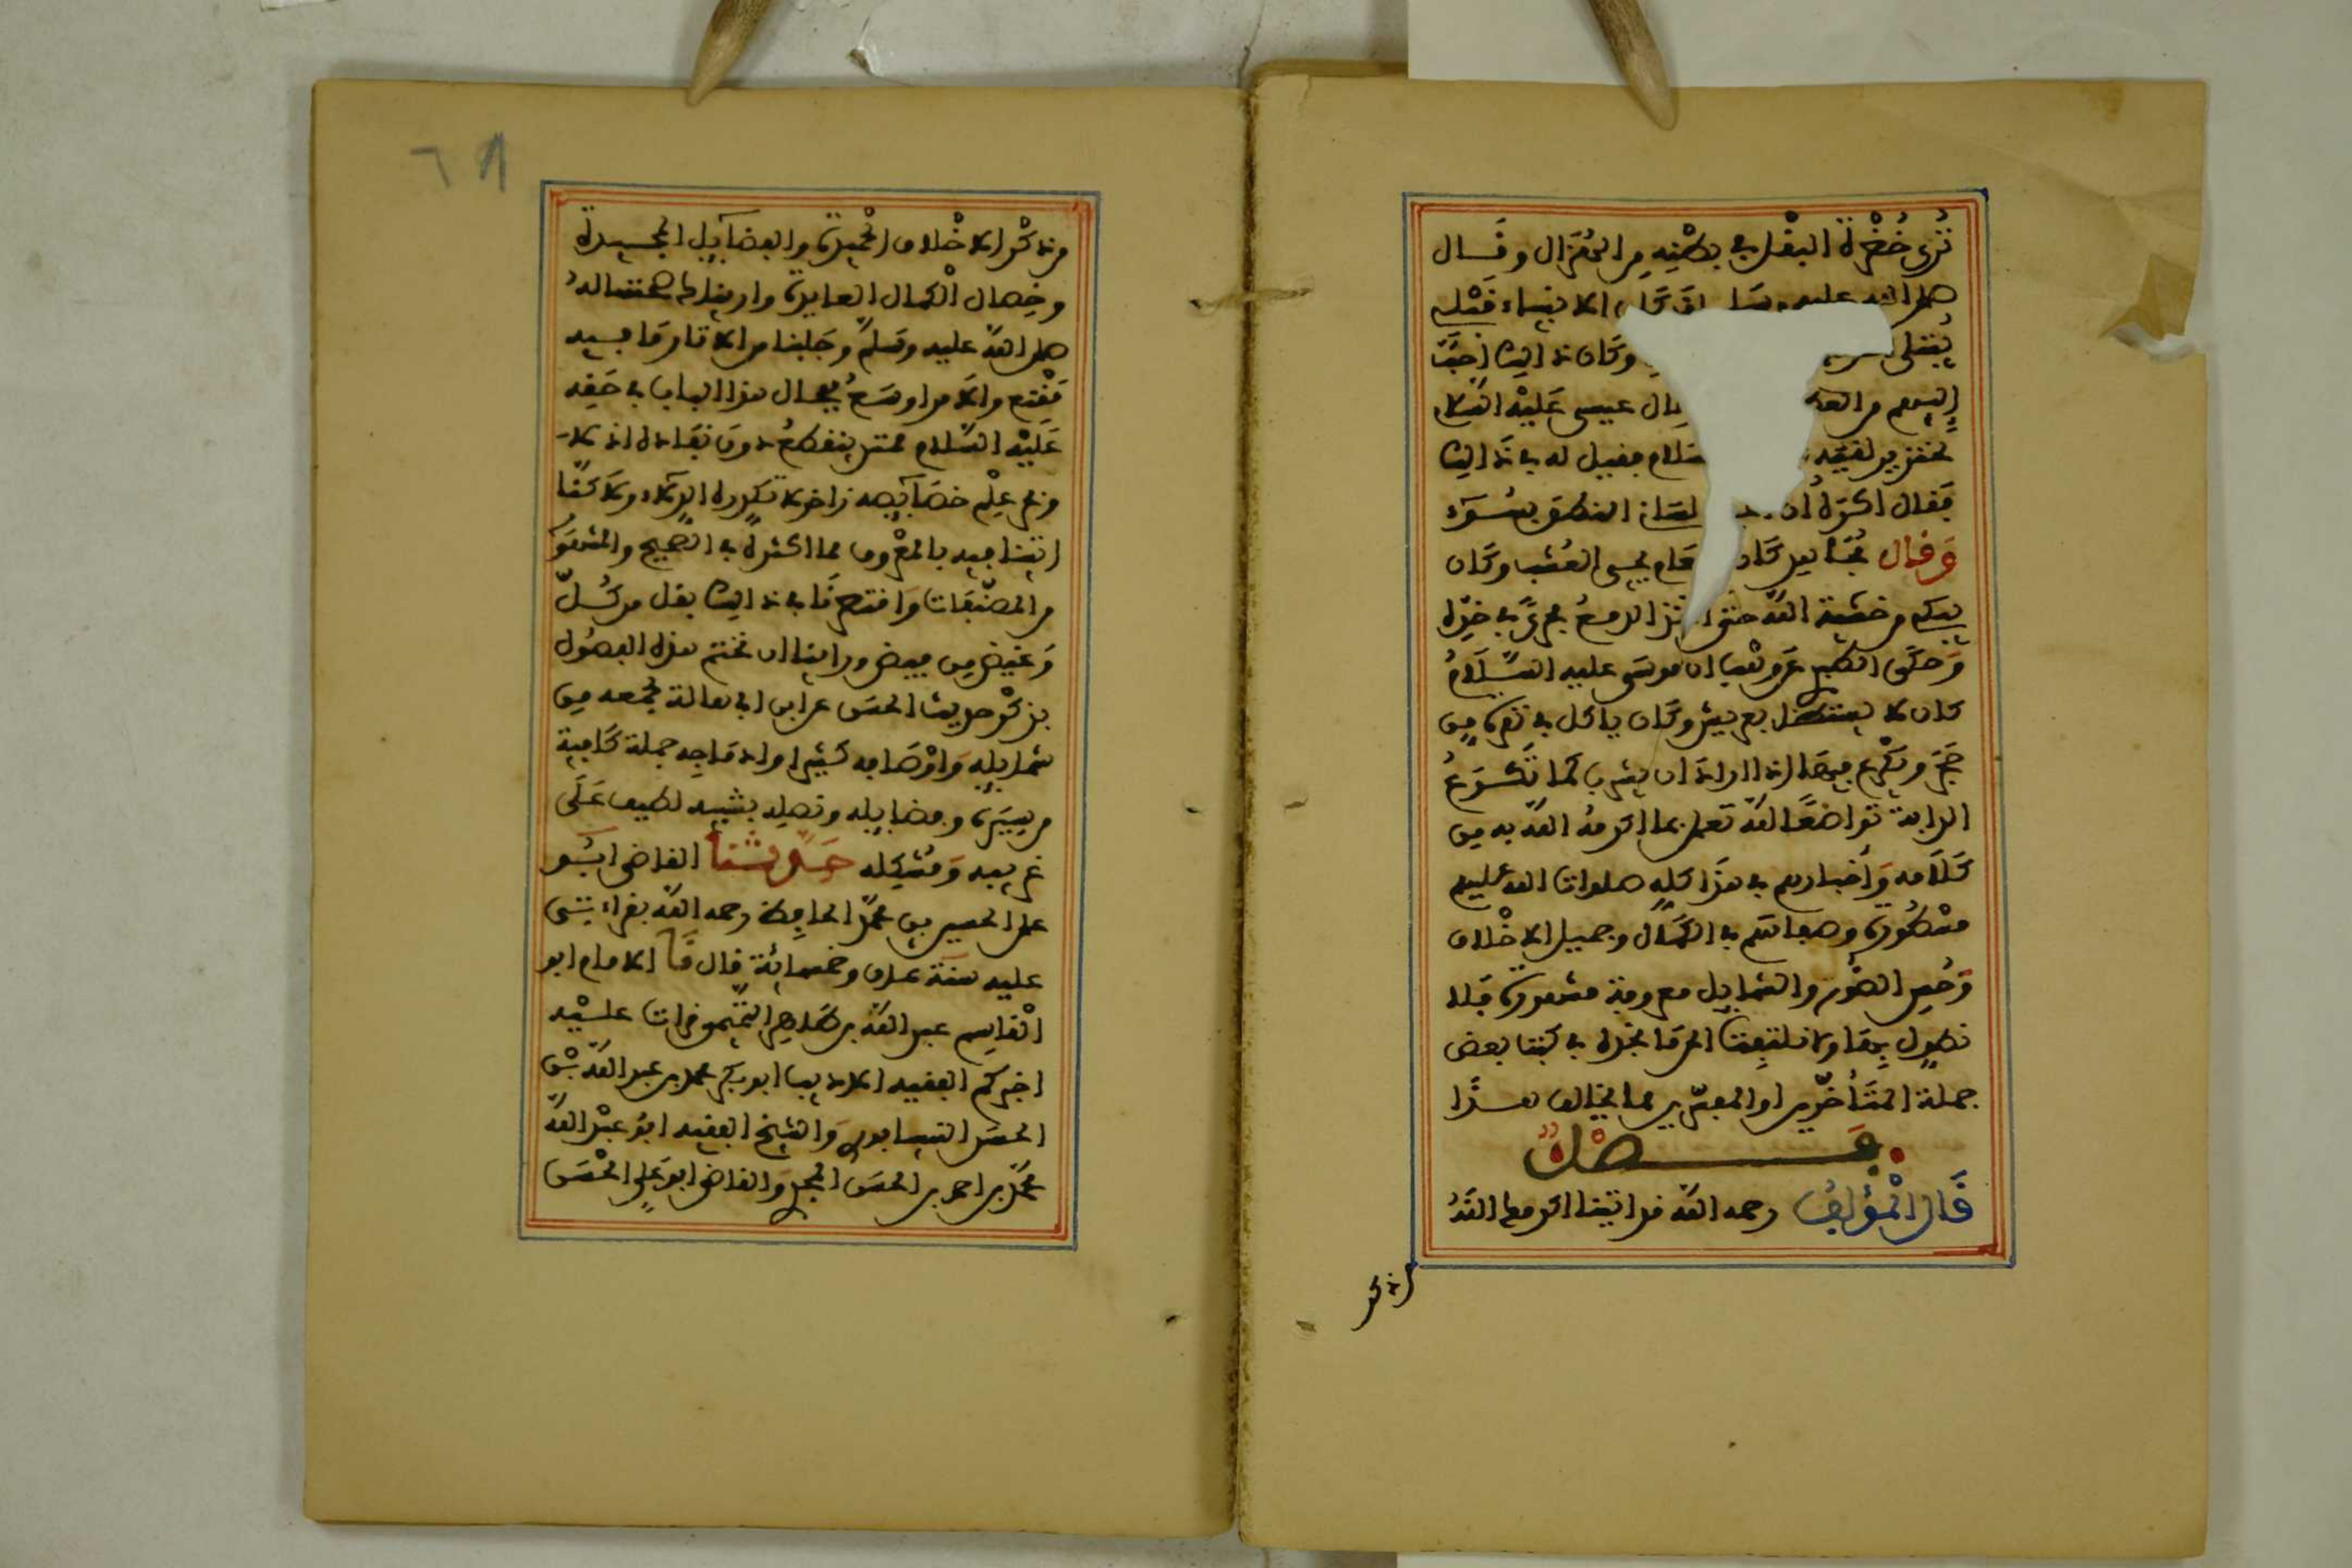 تُرى خُضْرة البقل في بطنه من الهُزال وقال
صلى الله عليه وسلم لقد كان الانبياء قبلي
يُبتلى وكان ذالك احبّ
اليهم من العطا وقال عيسى عليه السلام
لخنزير لقيه بسلام فقيل له في ذالك
فقال اكره ان لسانى النطق بسوء
وقال مجاهد كان طعام يحيى العُشب وكان
يبكي من خشية الله حتى اتخذ الدمع مجرى في خدّه
وحكى الطبري عن وهب ان موسى عليه السلام
كان لا يستظل بعريش وكان ياكل في نقرة من
حجر ويكرع فيها اذا اراد ان يشرب كما تكرع
الدابة تواضعًا لله تعلى بما اكرمه الله به من
كلامه وأخبارهم في هذا كله صلوات الله عليهم
مسطورة وصفاتهم في الكمال وجميل الاخلاق
وحُسن الصُّور والشمايل معروفة مشهورة فلا
نطول بها ولا تلتفت الى ما تجده في كتب بعض
جملة المتأخرين او المفسرين مما يخالف هذا
فصل
قال المؤلف رحمه الله قد اتينا اكرمك الله
من ذكر
٦٨
من ذكر الاخلاق الحميدة والفضآيل المجيدة
وخصال الكمال العديدة واريناك صحتها له
صلى الله عليه وسلم وجلبنا من الاثار ما فيه
مقنع والامر اوسع فمجال هذا الباب في حقه
عليه السلام ممتد ينقطع دون نفاده الادلا
وبحر علم خصآيصه زاخر لا تكدره الدلاء ولاكنّا
اتينا فيه بالمعروف مما اكثره في الصحيح والمشهور
من المصنّفات واقتصرنا في ذالك بقل من كُلّ
وغيض من فيض وراينا ان نختم هذه الفصول
بذكر حديث الحسن عن ابن ابي هالة لجمعه من
شمايله واوصافه كثيرا وادماجه جملة كافية
من سيره وفضايله ونصله بتنبيه لطيف على
غريبه ومُشكله حدثنا القاضى ابو
على الحسين بن محمد الحافظ رحمه الله بقراءتى
عليه سنة ثمان وخمسمائة قال نا الامام ابو
القاسم عبد الله بن طاهر التميمى قرات عليه
اخبركم الفقيه الاديب ابو بكر محمد بن عبد الله بن
الحسن النيسابوري والشيخ الفقيه ابو عبد الله
محمد بن احمد بن الحسن المحمدي والقاضى ابو على الحسن